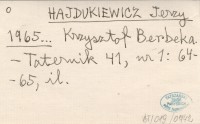 O HAJDUKIEWICZ Jerzy
1965... Krzysztof Berbeka
- Taternik 41, nr 1: 64-
-65, il.